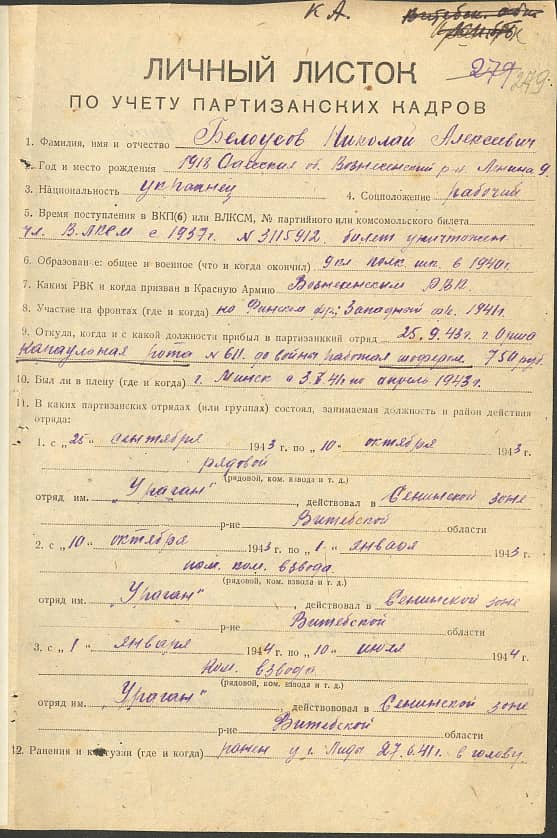 К А.
279 279.
ЛИЧНЫЙ ЛИСТОК
ПО УЧЕТУ ПАРТИЗАНСКИХ КАДРОВ
1. Фамилия, имя и отчество Белоусов Николай Алексеевич
2. Год и место рождения 1918 Одесская об. Вознесенский р-н
3. Национальность украинец 4. Соцположение рабочий
5. Время поступления в ВКП(б) или ВЛКСМ, № партийного или комсомольского билета
чл. ВЛКСМ с 1937г. N 3115912 билет уничтожен
6. Образование: общее и военное (что и когда окончил) 9кл полк шк. в 1940г.
7. Каким РВК и когда призван в Красную Армию Вознесенским РВК
8. Участие на фронтах (где и когда) на Финском фр; Западной фр. 1941г.
9. Откуда, когда и с какой должности прибыл в партизанкий отряд 25.9.43г. г. Орша
караульная рота N 611. до войны работал шофером 750 руб.
10. Был ли в плену (где и когда) г. Минск с 3.7.41г по апрель 1943г.
11. В каких партизанских отрядах (или группах) состоял, занимаемая должность и район действия
отряда:
1. с „25" сентября 1943 г. по „10" октября 1943 г.
рядовой
(рядовой, ком. взвода и т. д.)
отряд им. „Ураган" , действовал в Сенинской зоне
р-не Витебской области
2. с „10" октября 1943 г. по „1" января 1943 г.
пом. ком. взвода.
(рядовой, ком. взвода и т. д.)
отряд им. „Ураган" , действовал в Сенинской зоне
р-не Витебской области
3. с „1" января 1944 г. по „10" июля 1944 г.
Ком. взвода
(рядовой, ком. взвода и т. д.)
отряд им. „Ураган" , действововал в Сенинской зоне
р-не Витебской области
12. Ранения и контузии (где и когда) ранен у г. Лиды 27.6.41г. в голову.